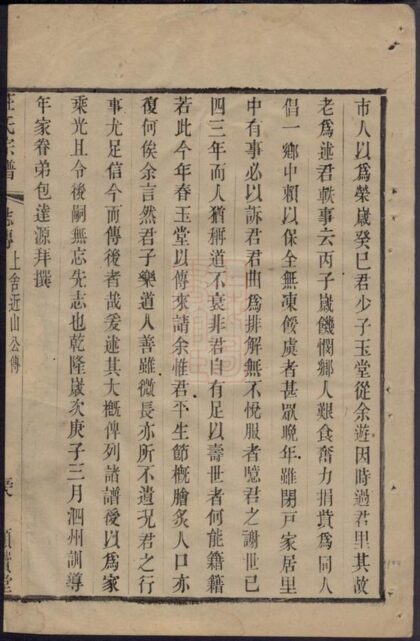 市人以爲榮歲癸巳君少子玉堂從余遊因時過君里其故
老爲述君軼事云丙子歲饑憫鄉人艱食奮力捐貲爲同人
倡一鄉中頼以保全無凍餒虞者甚眾晚年雖閉戸家居里
中有事必以訴君君曲爲排解無不悅服者噫君之謝世已
四三年而人猶稱道不衰非君自有足以壽世者何能籍籍
若此今年春玉堂以傳來請余惟君平生節概膾炙人口亦
復何俟余言然君子樂道人善雖微長亦所不遺況君之行
事尤足信今而傳後者哉爰述其大概俾列諸譜後以爲家
乘光且令後嗣無忘先志也乾隆歲次庚子三月泗州訓導
年家眷弟包達源拜撰
汪氏宗譜 志傳 上舍近山公傳